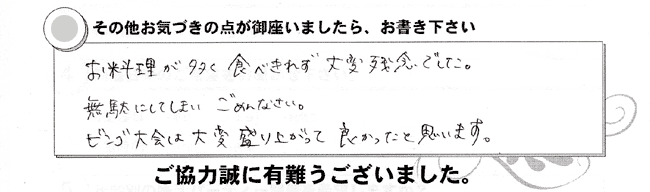 その他お気づきの点が御座いましたら、お書き下さい
お料理が多く 食べきれず 大変残念でした。
無駄にしてしまい ごめんなさい。
ビンゴ大会は大変盛り上がって 良かったと思います。
ご協力誠に有難うございました。